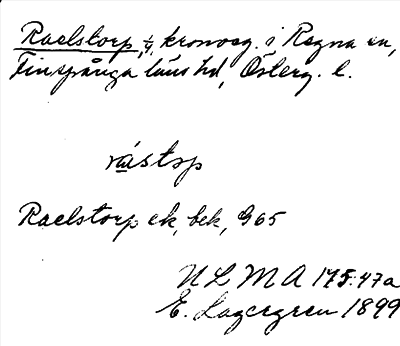 Raelstorp, 1/4, kronoeg. i Regna sn,
Finspånga läns hd, Österg. l.
råstsp
Raelstorp ek, bek, G65
ULMA 175:47a
E. Lagergren 1899